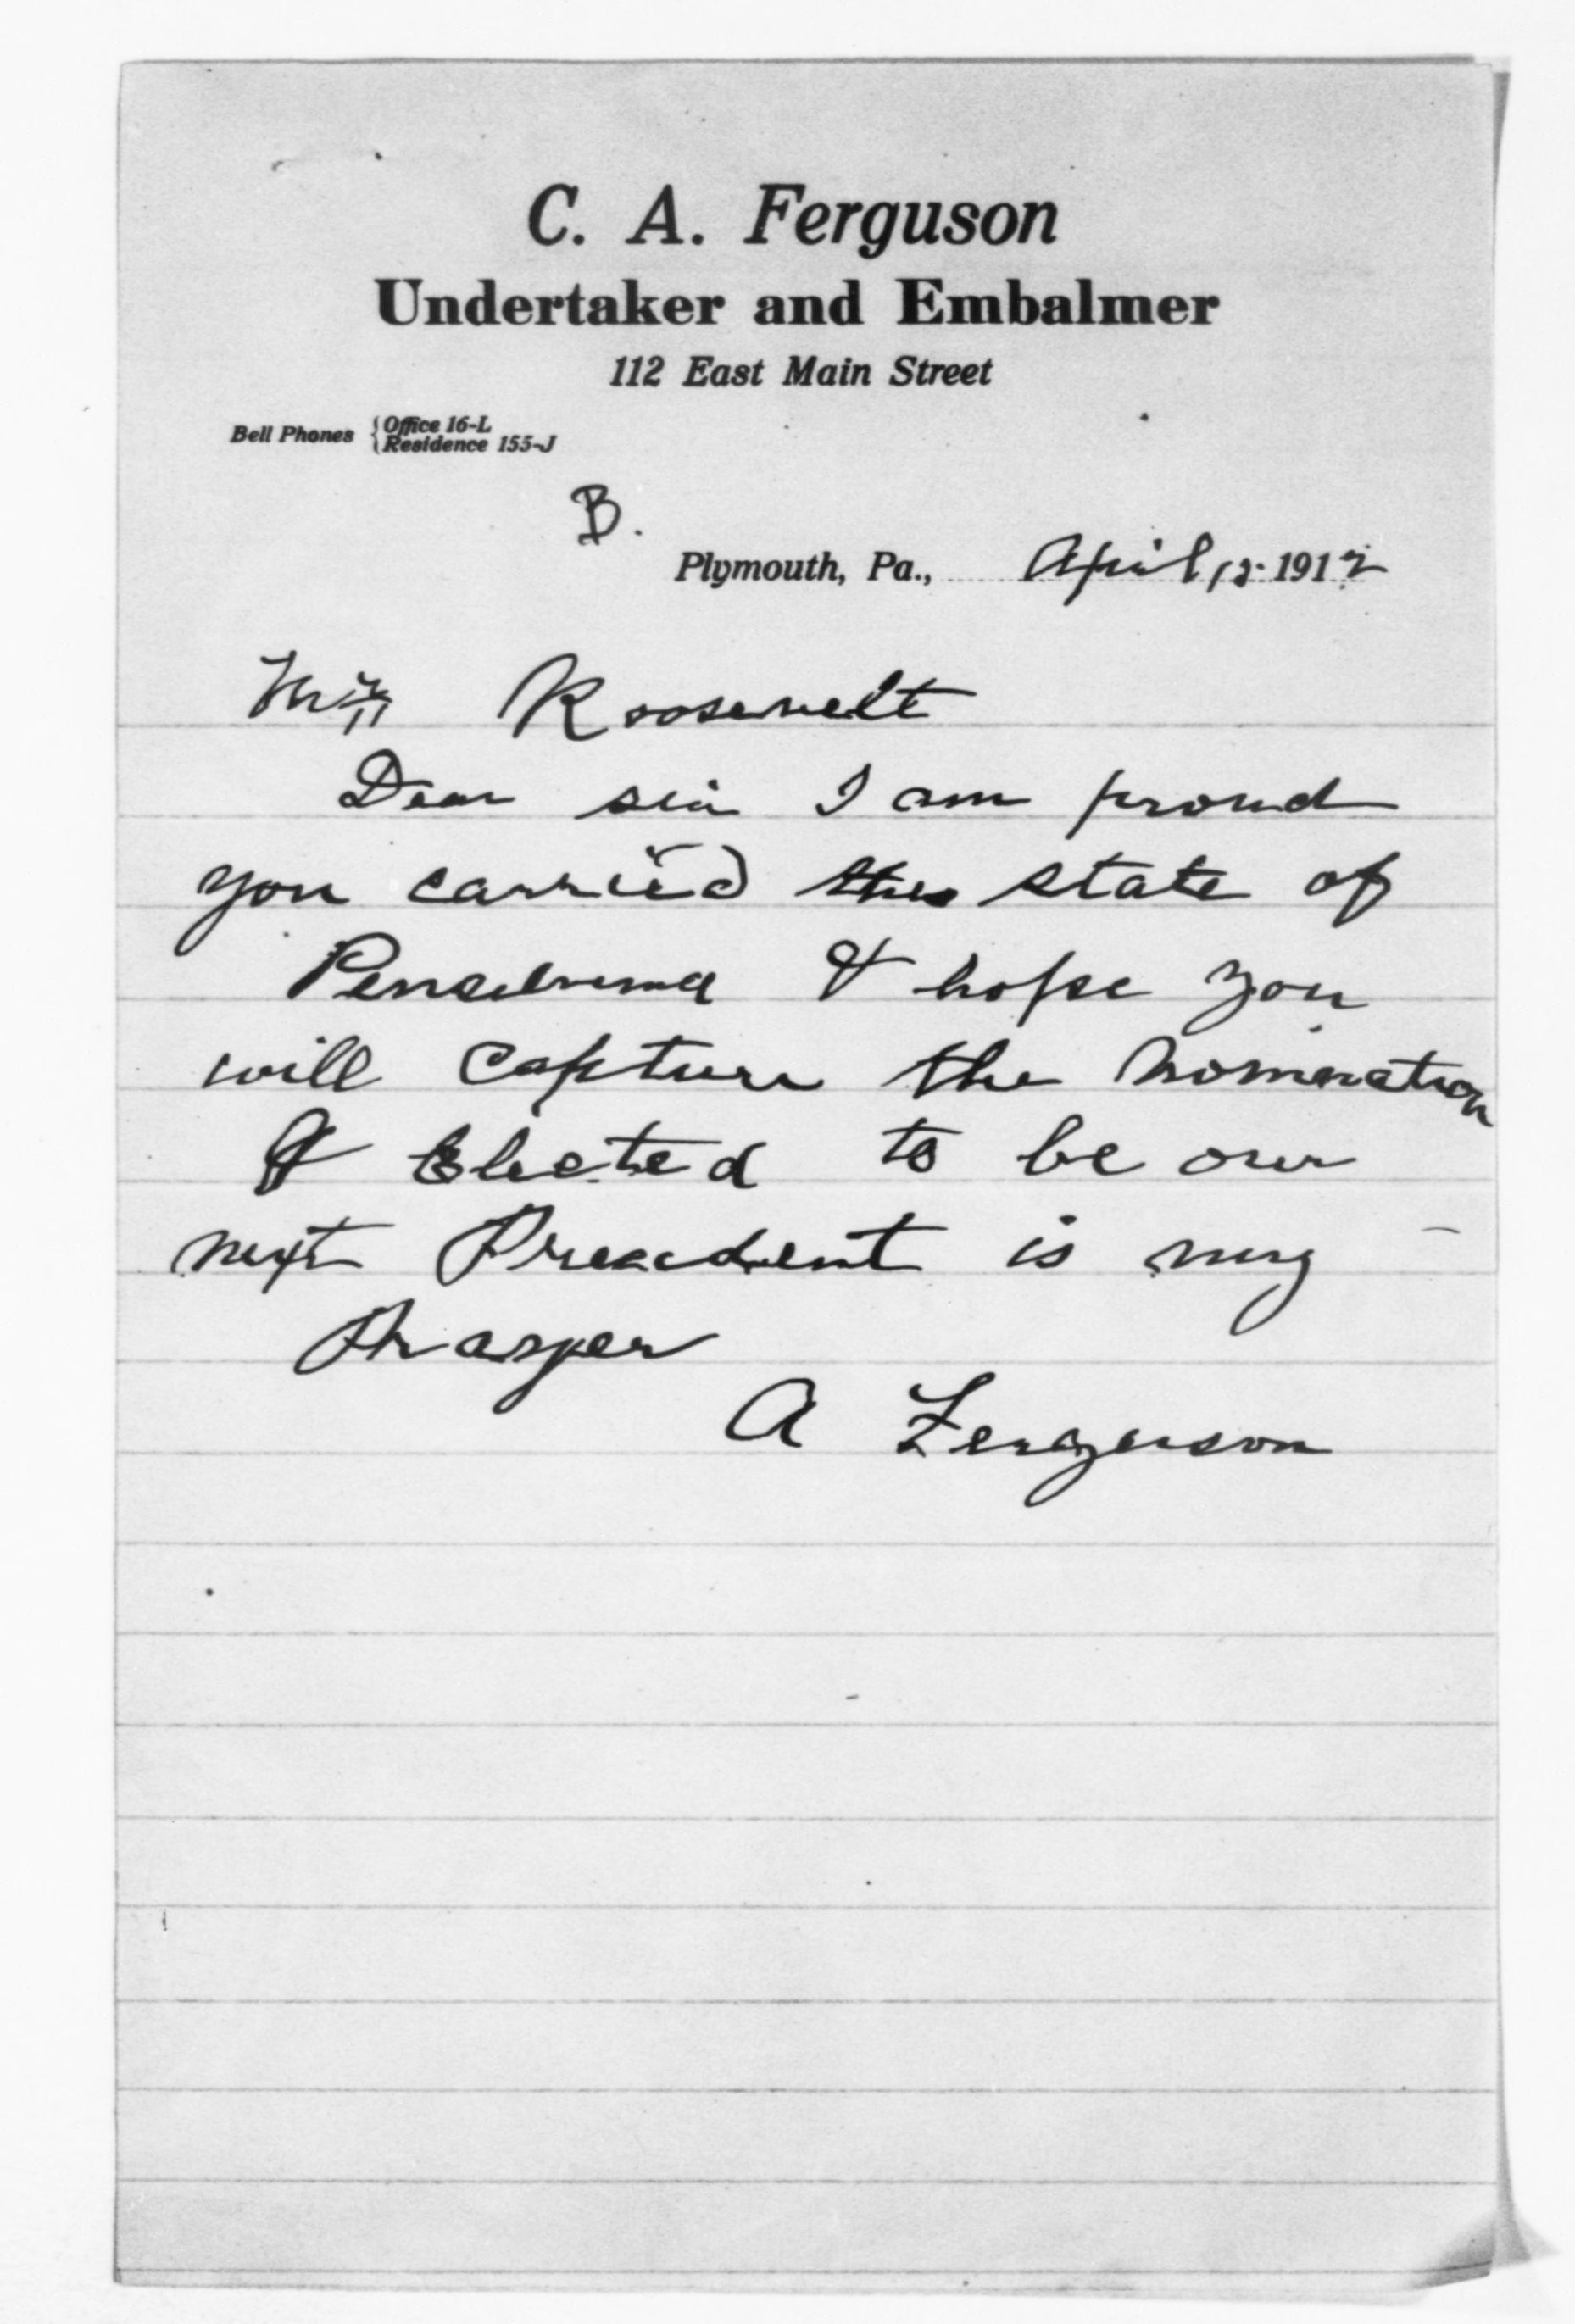 C. A. Ferguson
Undertaker and Embalmer
112 East Main Street
Bell Phones { Office 16-L
Residence 155-J
B.
Plymouth, Pa., April 1912
Roosevelt
Dear sir I am proud
you carried the state of
& hope you
will capture the nomination
& Elected to be our
next is my
A